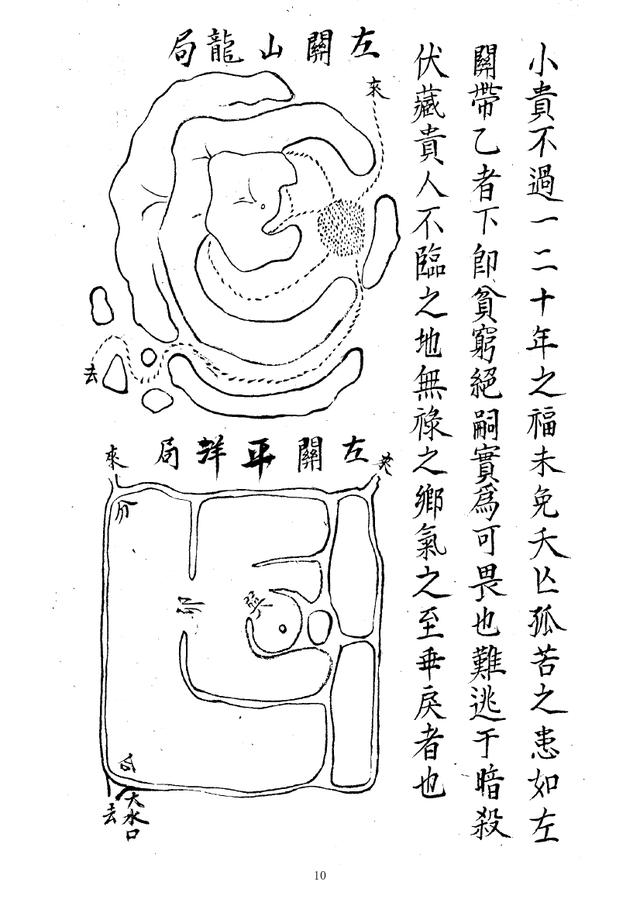 小貴不過一二十年之福未免夭亾孤苦之患如左
關帶乙者下卽貧窮絕嗣實爲可畏也難逃于暗殺
伏藏貴人不臨之地無祿之鄉氣之至乖戾者也
左關山龍局
來
去
左關平洋局
來
分
卯
合
大水口
去
10